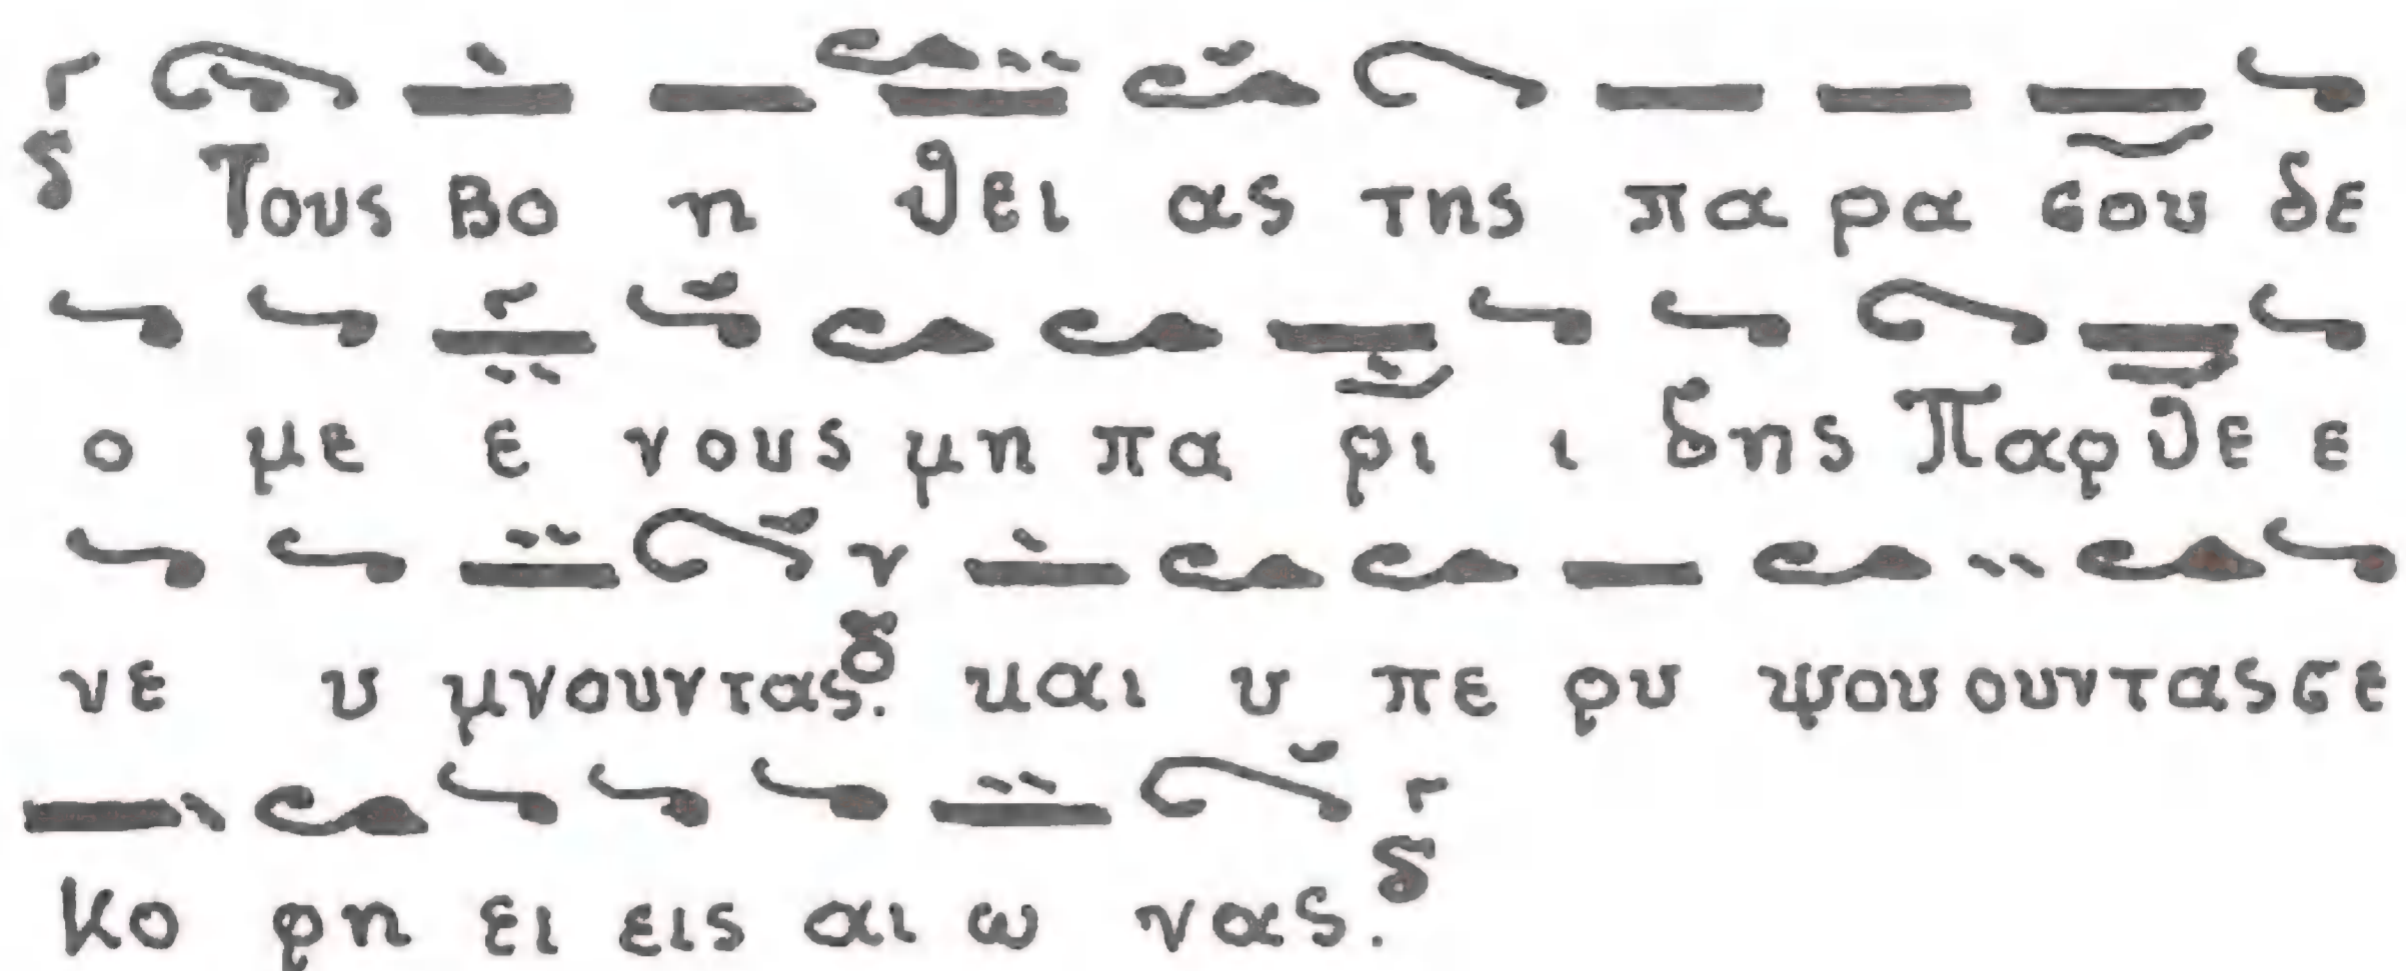 Τους βο η θει ας της πα ρα σου δε
ο με ε νους μη πα ρι ι δης Παρ θε ε
νε υ μνουντας. και υ πε ρυ ψου ουντας σε
Κο ρη ει εις αι ω νας.